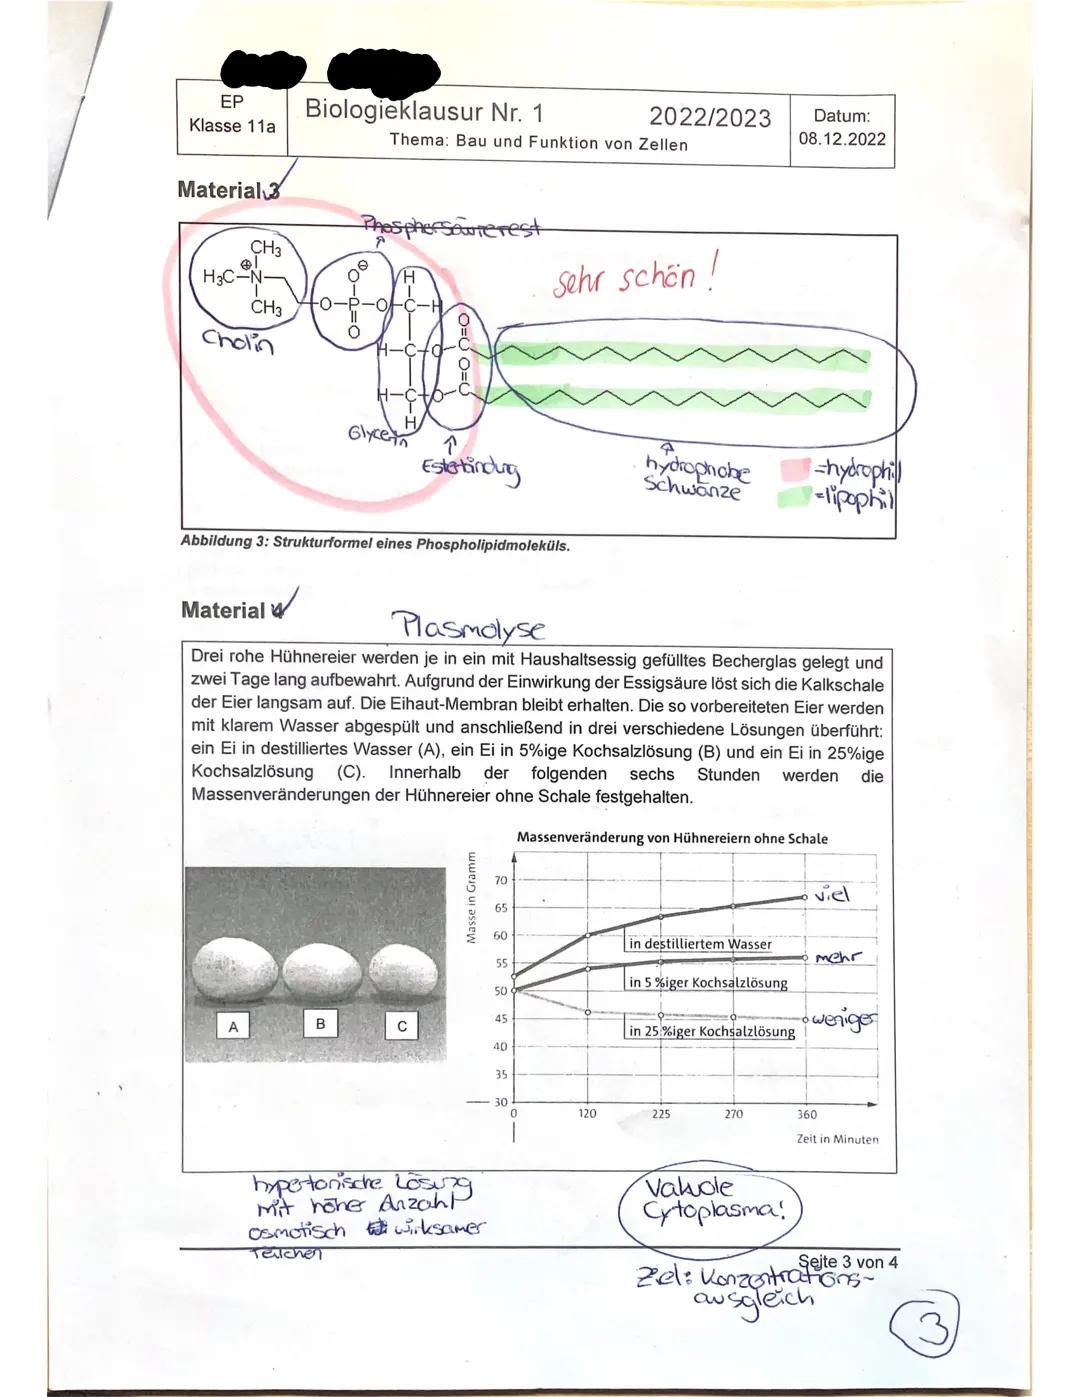 EP
Klasse 11a
Biologieklausur Nr. 1 2022/2023
Thema: Bau und Funktion von Zellen
Datum:
08.12.2022
Material 3
Phosphorsäurerest
CH3
H3C-N
CH3
Cholin
sehr schön!
Glycerin
Esterbindung
hydrophobe
Schwänze
=hydrophil
=lipophil
Abbildung 3: Strukturformel eines Phospholipidmoleküls.
Material 4
Plasmolyse
Drei rohe Hühnereier werden je in ein mit Haushaltsessig gefülltes Becherglas gelegt und
zwei Tage lang aufbewahrt. Aufgrund der Einwirkung der Essigsäure löst sich die Kalkschale
der Eier langsam auf. Die Eihaut-Membran bleibt erhalten. Die so vorbereiteten Eier werden
mit klarem Wasser abgespült und anschließend in drei verschiedene Lösungen überführt:
ein Ei in destilliertes Wasser (A), ein Ei in 5%ige Kochsalzlösung (B) und ein Ei in 25%ige
Kochsalzlösung (C). Innerhalb der folgenden sechs Stunden werden die
Massenveränderungen der Hühnereier ohne Schale festgehalten.
Massenveränderung von Hühnereiern ohne Schale
Masse in Gramm
70
65
60
55
50
45
40
35
30
in destilliertem Wasser
in 5 %iger Kochsalzlösung
in 25 %iger Kochsalzlösung
viel
mehr
weniger
A B C
0 120 225 270 360
Zeit in Minuten
hypertonische Lösung
mit hoher Anzahl
osmotisch wirksamer
Teilchen
Vakuole
Cytoplasma!
Seite 3 von 4
Ziel: Konzentrations-
ausgleich
3